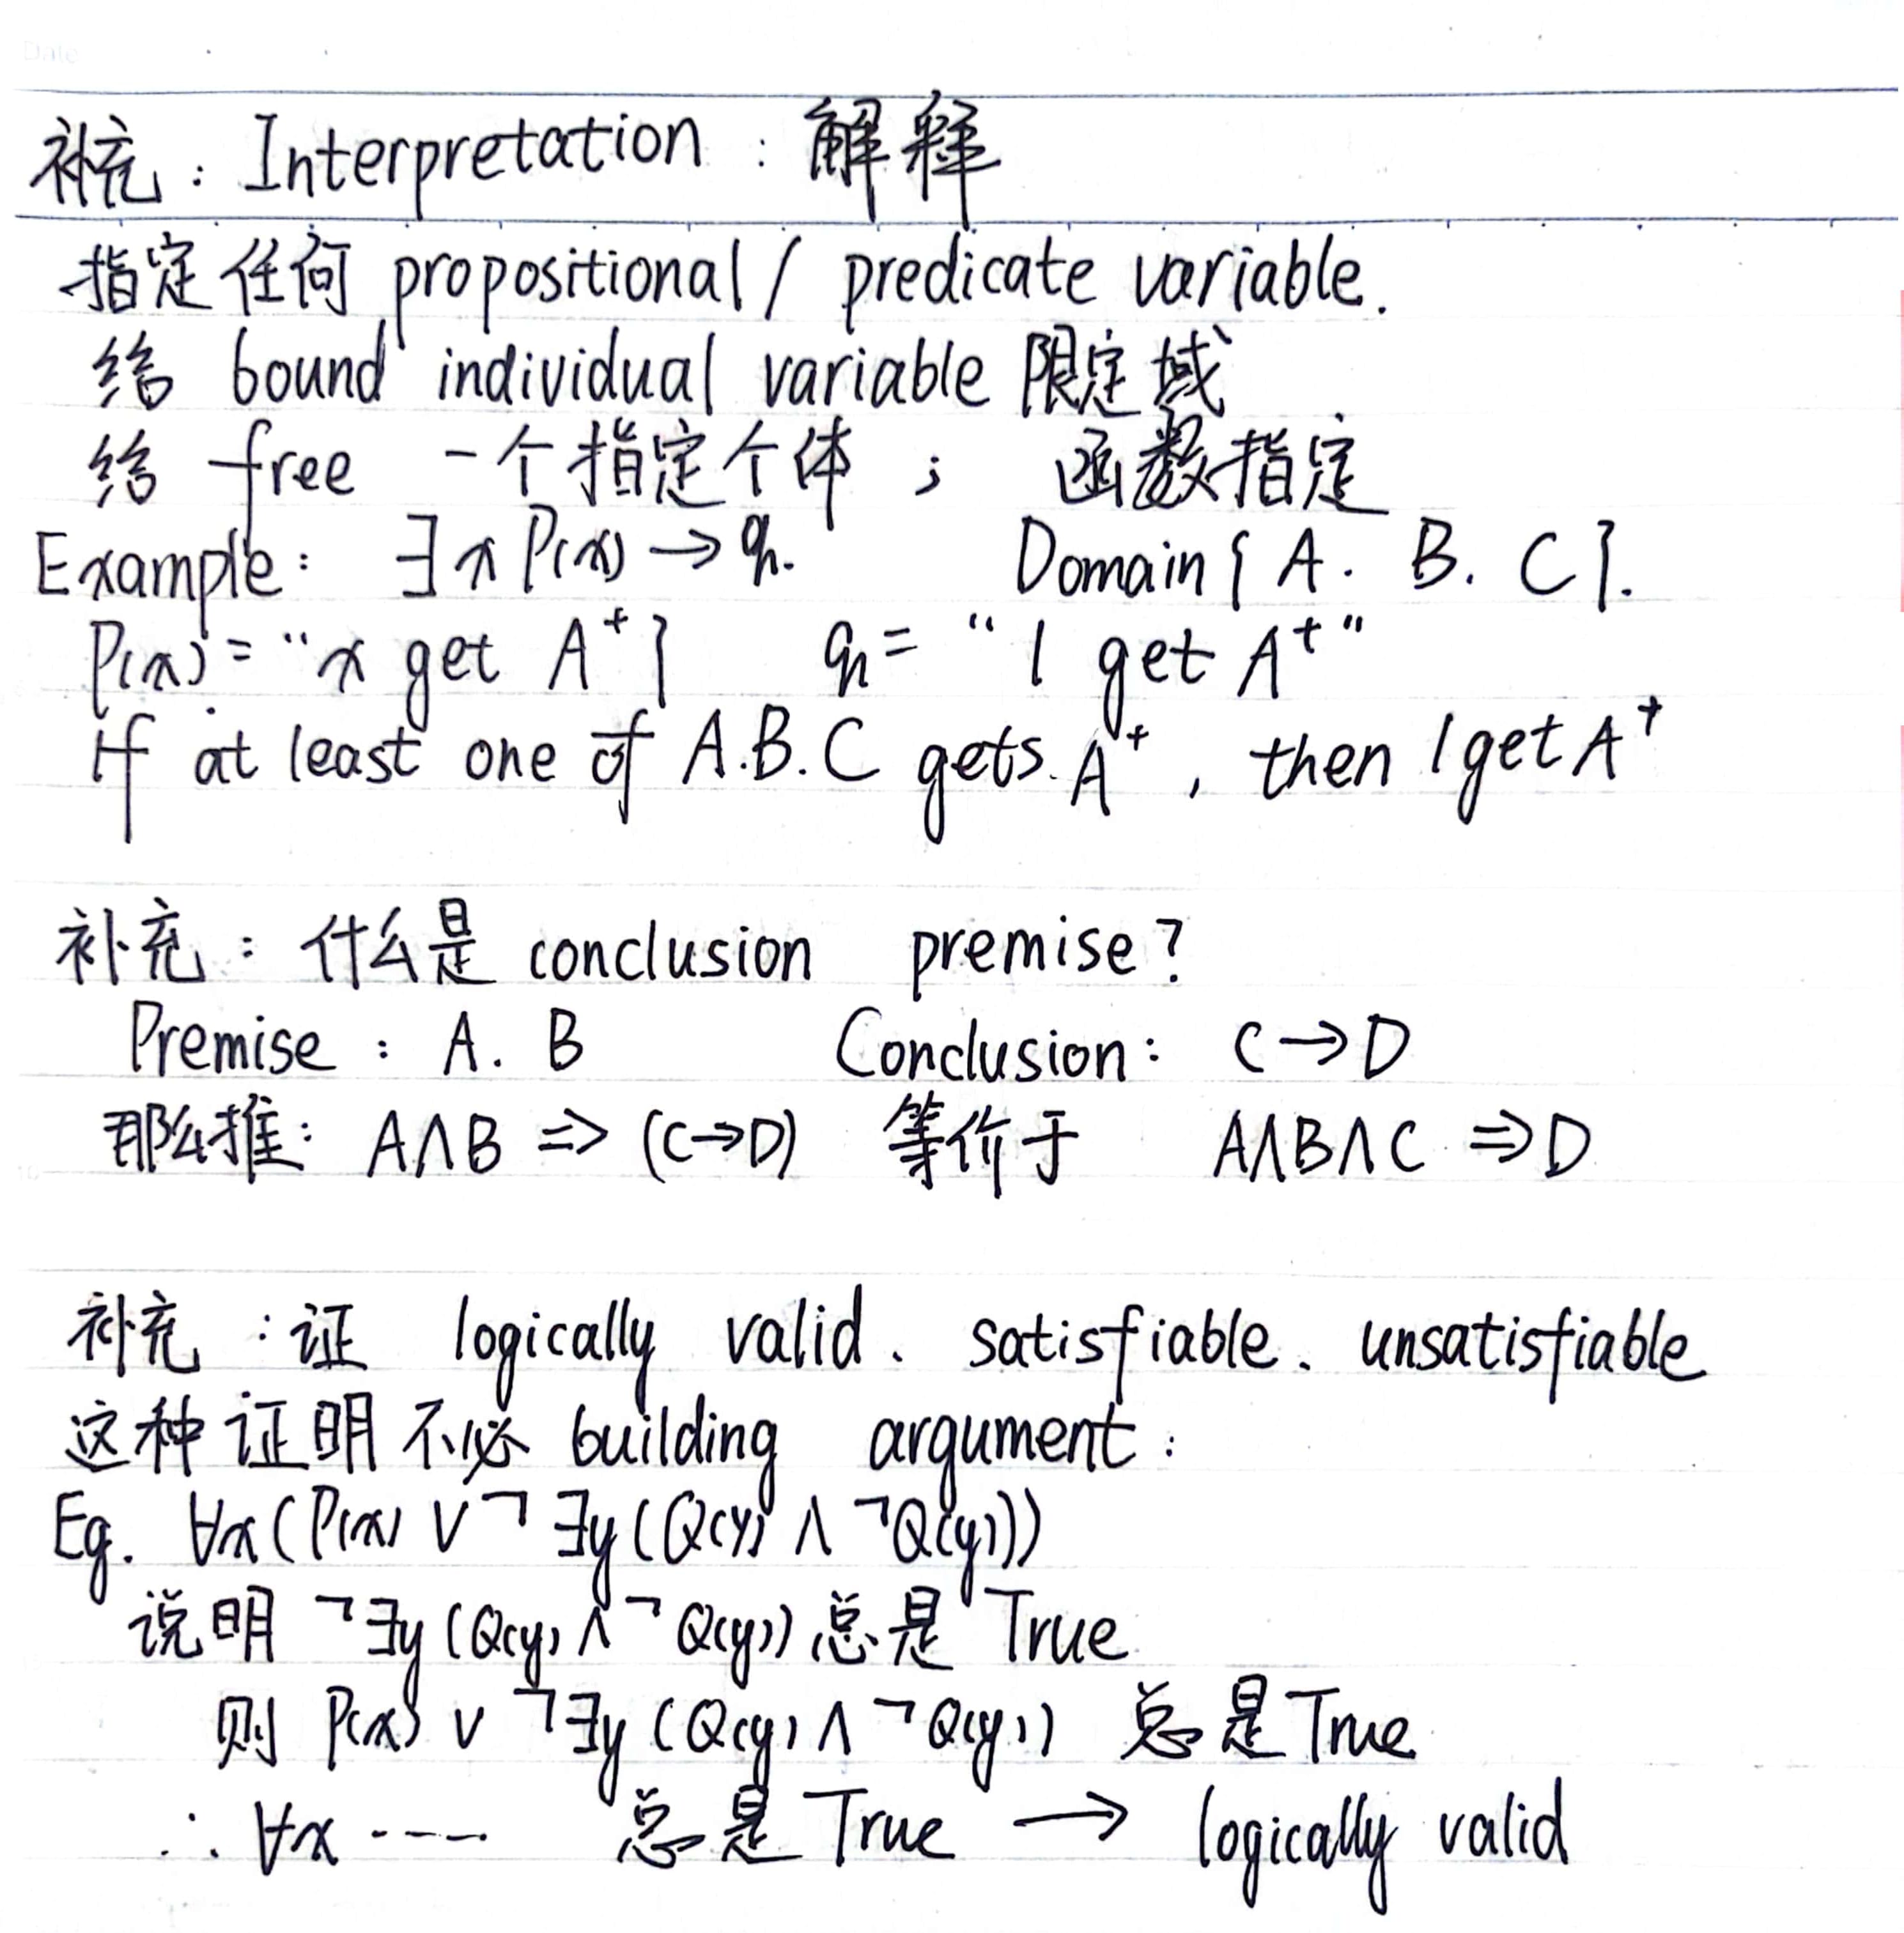 Date
补充：Interpretation：解释
指定任何 propositional / predicate variable.
给 bound individual variable 限定域
给 free 一个指定个体； 函数指定
Example： ∃x P(x) → q. Domain { A. B. C }.
P(x) = “x get A⁺} q = “I get A⁺”
If at least one of A.B.C gets A⁺, then I get A⁺
补充：什么是 conclusion premise?
Premise： A. B Conclusion： C→D
那么推： A∧B => (C→D) 等价于 A∧B∧C => D
补充：证 logically valid、satisfiable、unsatisfiable
这种证明不必 building argument：
Eg. ∀x(P(x) ∨ ¬∃y(Q(y) ∧ ¬Q(y)))
说明 ¬∃y(Q(y) ∧ ¬Q(y)) 总是 True
则 P(x) ∨ ¬∃y(Q(y) ∧ ¬Q(y)) 总是 True
∴ ∀x ---- 总是 True → logically valid